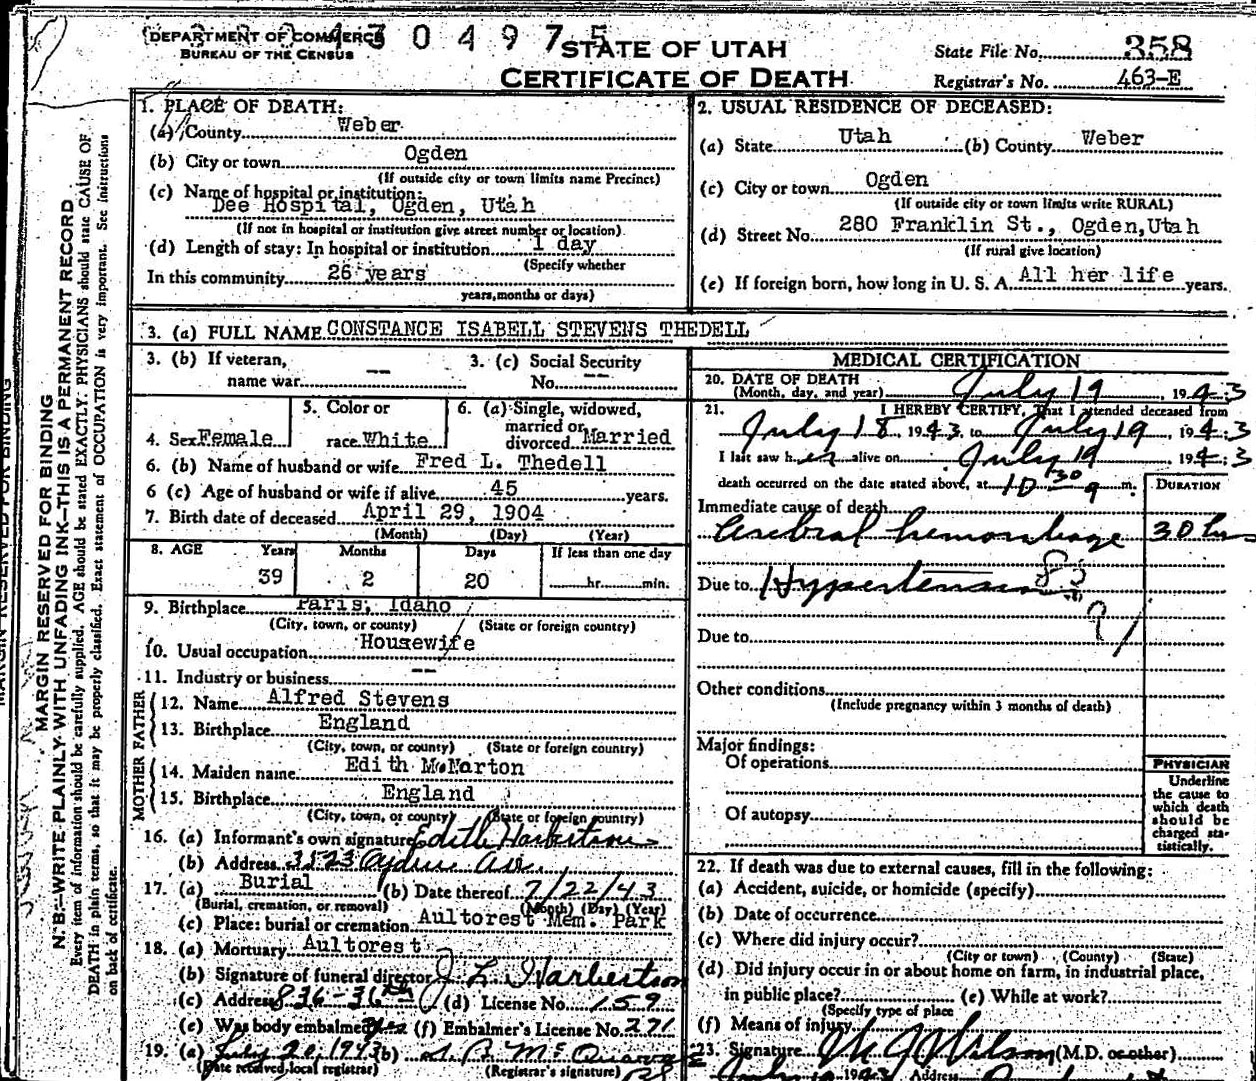 DEPARTMENT OF COMMERCE
BUREAU OF THE CENSUS
STATE OF UTAH
CERTIFICATE OF DEATH
State File No. 358
Registrar's No. 463-E
MARGIN RESERVED FOR BINDING
N. B.—WRITE PLAINLY WITH UNFADING INK—THIS IS A PERMANENT RECORD
Every item of information should be carefully supplied. AGE should be stated EXACTLY. PHYSICIANS should state CAUSE OF
DEATH in plain terms, so that it may be properly classified. Exact statement of OCCUPATION is very important. See instructions
on back of certificate.
1. PLACE OF DEATH:
(a) County Weber
(b) City or town Ogden
(If outside city or town limits name Precinct)
(c) Name of hospital or institution:
Dee Hospital, Ogden, Utah
(If not in hospital or institution give street number or location)
(d) Length of stay: In hospital or institution 1 day
(Specify whether
In this community 26 years
years, months or days)
2. USUAL RESIDENCE OF DECEASED:
(a) State Utah (b) County Weber
(c) City or town Ogden
(If outside city or town limits write RURAL)
(d) Street No. 280 Franklin St., Ogden, Utah
(If rural give location)
(e) If foreign born, how long in U. S. A. All her life years.
3. (a) FULL NAME CONSTANCE ISABELL STEVENS THEDELL
3. (b) If veteran, name war --
3. (c) Social Security No. --
4. Sex Female
5. Color or race White
6. (a) Single, widowed, married or divorced Married
6. (b) Name of husband or wife Fred L. Thedell
6 (c) Age of husband or wife if alive 45 years.
7. Birth date of deceased April 29, 1904
(Month) (Day) (Year)
8. AGE Years Months Days If less than one day
39 2 20 hr. min.
9. Birthplace Paris, Idaho
(City, town, or county) (State or foreign country)
10. Usual occupation Housewife
11. Industry or business --
FATHER
12. Name Alfred Stevens
13. Birthplace England
(City, town, or county) (State or foreign country)
MOTHER
14. Maiden name Edith McNarton
15. Birthplace England
(City, town, or county) (State or foreign country)
16. (a) Informant's own signature Edith Harbertson
(b) Address 3523 Ogden Ave.
17. (a) Burial (b) Date thereof 7/22/43
(Burial, cremation, or removal) (Month) (Day) (Year)
(c) Place: burial or cremation Aultorest Mem. Park
18. (a) Mortuary Aultorest
(b) Signature of funeral director J L Harbertson
(c) Address 836-36th (d) License No. 159
(e) Was body embalmed yes (f) Embalmer's License No. 271
19. (a) July 20, 1943 (b)
(Date received local registrar) (Registrar's signature)
MEDICAL CERTIFICATION
20. DATE OF DEATH
(Month, day, and year) July 19, 1943
21. I HEREBY CERTIFY, That I attended deceased from
July 18, 1943, to July 19, 1943
I last saw her alive on July 19, 1943
death occurred on the date stated above, at 10 30 a m.
DURATION
Immediate cause of death
Cerebral hemorrhage 30 hrs
Due to Hypertension
Due to
Other conditions
(Include pregnancy within 3 months of death)
Major findings:
Of operations
Of autopsy
PHYSICIAN
Underline
the cause to
which death
should be
charged sta-
tistically.
22. If death was due to external causes, fill in the following:
(a) Accident, suicide, or homicide (specify)
(b) Date of occurrence
(c) Where did injury occur?
(City or town) (County) (State)
(d) Did injury occur in or about home on farm, in industrial place,
in public place? (e) While at work?
(Specify type of place
(f) Means of injury
23. Signature Wilson (M.D. or other)
1943 Address